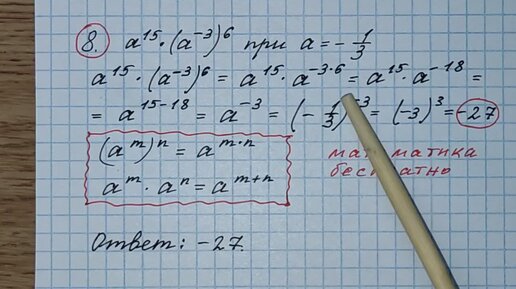 8. a¹⁵ · (a⁻³)⁶ при a = -1/3
a¹⁵ · (a⁻³)⁶ = a¹⁵ · a⁻³·⁶ = a¹⁵ · a⁻¹⁸ =
= a¹⁵⁻¹⁸ = a⁻³ = (-1/3)⁻³ = (-3)³ = -27
(aᵐ)ⁿ = aᵐ·ⁿ
aᵐ · aⁿ = aᵐ⁺ⁿ
математика
бесплатно
Ответ: -27.